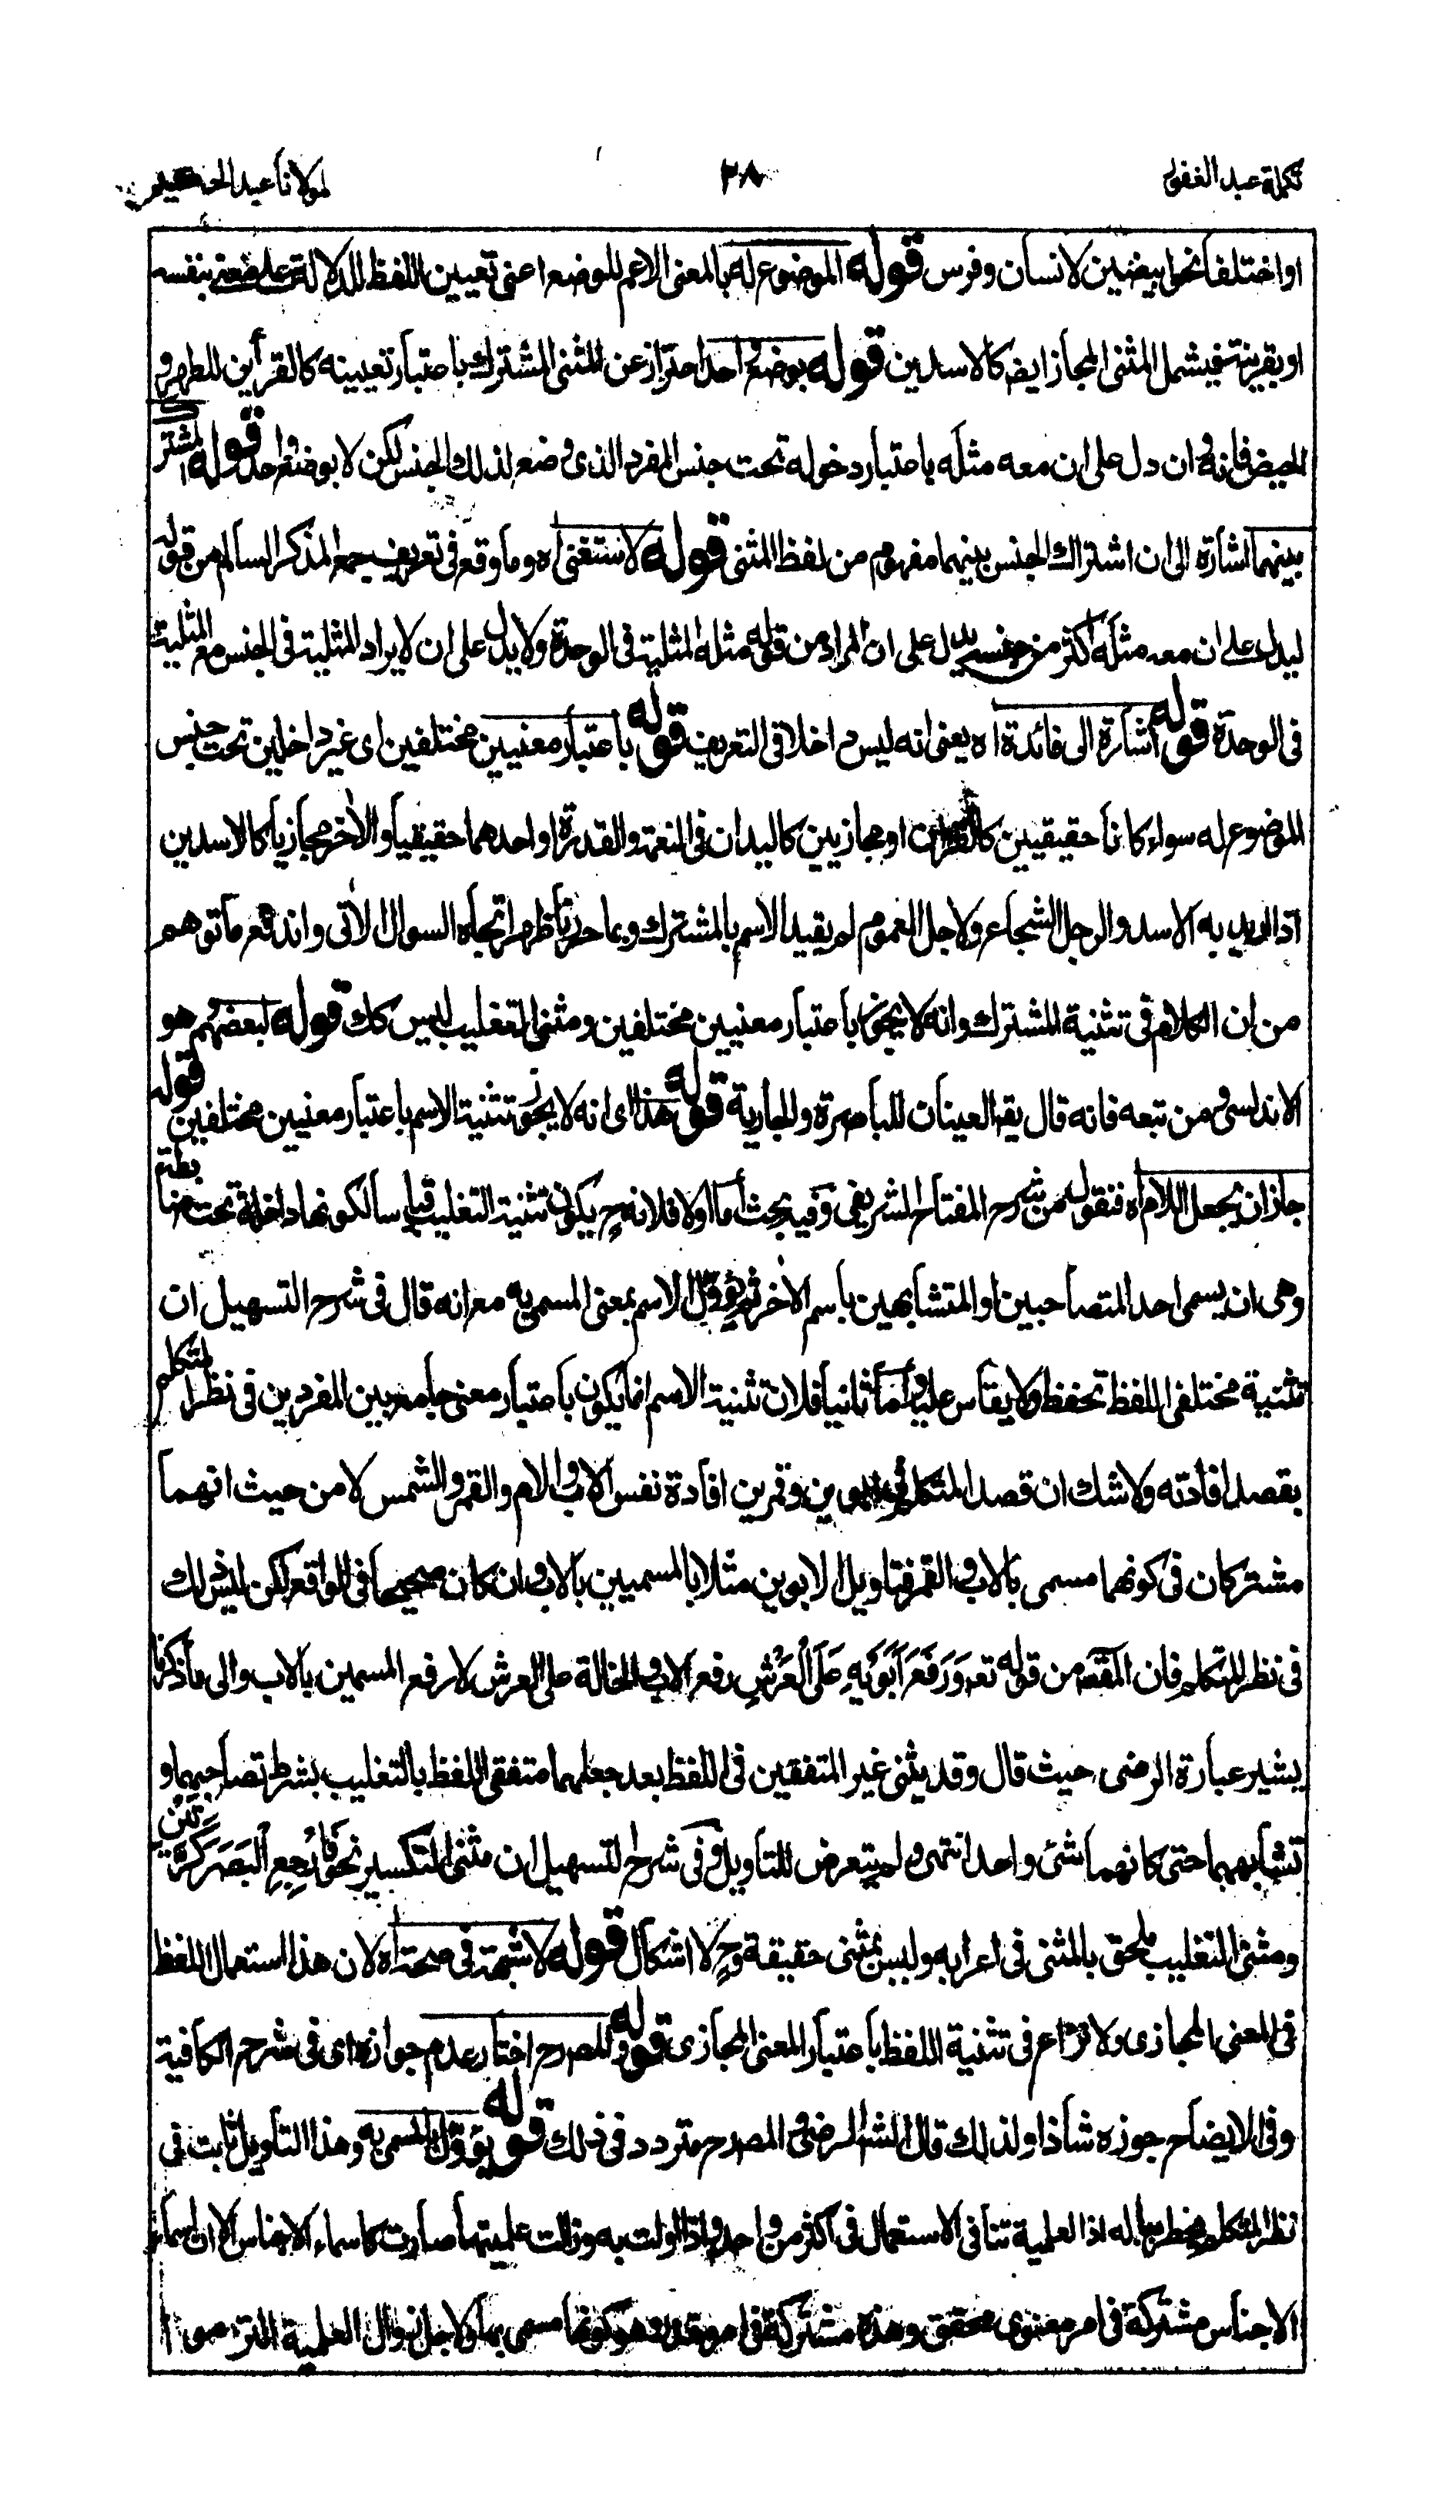 تكملة عبد الغفور
٢٨
لمولانا عبد الحكيم
او اختلفا نحو ابيضين لانسان وفرس قوله الموضوع له بالمعنى الاعم للوضع اعنى تعيين اللفظ للدلالة على معنى بنفسه
او بقرينة فيشمل المثنى المجاز ايضا كالاسدين قوله بوضع واحد احتراز عن المثنى المشترك باعتبار تعيينه كالقرأين للطهر و
للحيض فانه وان دل على ان معه مثله باعتبار دخوله تحت جنس المفرد الذى وضع لذلك الجنس لكن لا بوضع واحد قوله المشترك
بينهما اشارة الى ان اشتراك الجنس بينهما مفهوم من لفظ المثنى قوله لاستغنى اه وما وقع فى تعريف جمع المذكر السالم من قوله
ليدل على ان معه مثله اكثر من جنسه يدل على ان المراد من قوله مثله المثلية فى الوحدة ولا يدل على ان لا يراد المثلية فى الجنس مع المثلية
فى الوحدة قوله اشارة الى فائدة اه يعنى انه ليس داخلا فى التعريف قوله باعتبار معنيين مختلفين اى غير داخلين تحت جنس
الموضوع له سواء كانا حقيقيين كالقرأان او مجازيين كاليدان فى النعمة والقدرة او احدهما حقيقيا والاٰخر مجازيا كالاسدين
اذا اريد به الاسد والرجل الشجاع ولاجل العموم لم يقيد الاسم بالمشترك وبما حررنا ظهر اتجاه السوال الاٰتى واندفع ما توهم
من ان الكلام فى تثنية المشترك وانه لا يجوز باعتبار معنيين مختلفين ومثنى التغليب ليس كك قوله لبعضهم هو
الاندلسى ومن تبعه فانه قال يقـ العينان للباصرة والجارية قوله هذا اى انه لا يجوز تثنية الاسم باعتبار معنيين مختلفين قوله
جاز ان يجعل اللام اه فنقول من شرح المفتاح الشريفى وفيه بحث اما اولا فلانه ح يكون تثنية التغليب قياسا لكونها داخلة تحت ضابطة
وهى ان يسمى احد المتصاحبين او المتشابهين باسم الاٰخر ثم يؤول الاسم بمعنى المسمى به مع انه قال فى شرح التسهيل ان
تثنية مختلفى اللفظ تحفظ ولا يقاس عليه واما ثانيا فلان تثنية الاسم انما يكون باعتبار معنى جامع بين المفردين فى نظر المتكلم
بقصد افادته ولا شك ان قصد المتكلم فى ابوين وقمرين افادة نفس الاب والام والقمر والشمس لا من حيث انهما
مشتركان فى كونهما مسمى بالاب والقمر فتاويل الابوين مثلا بالمسميين بالاب وان كان صحيحا فى الواقع لكن ليس ذلك
فى نظر المتكلم فان المقصد من قوله تعـ وَرَفَعَ اَبَوَيْهِ عَلَى الْعَرْشِ رفع الاب والخالة على العرش لا رفع المسمين بالاب والى ما ذكرنا
يشير عبارة الرضى حيث قال وقد يثنى غير المتفقين فى اللفظ بعد جعلهما متفقى اللفظ بالتغليب بشرط تصاحبهما و
تشابههما حتى كانهما شئ واحد انتهى ولم يتعرض للتاويل وفى شرح التسهيل ان مثنى التكسير نحو فَارْجِعِ الْبَصَرَ كَرَّتَيْنِ
ومثنى التغليب ملحق بالمثنى فى اعرابه وليس بمثنى حقيقة وح لا اشكال قوله لا شبهة فى صحته اه لان هذا استعمال اللفظ
فى المعنى المجازى ولا نزاع فى تثنية اللفظ باعتبار المعنى المجازى قوله والمصرح اختار عدم جوازه اى فى شرح الكافية
وفى الايضاح جوزه شاذا ولذلك قال الشارح الرضى والمصرح متردد فى ذلك قوله يؤول بالمسمى به وهذا التاويل ثابت فى
نظر المتكلم مخطر بباله اذا العلمية تنافى الاستعمال فى اكثر من واحد واذا اولت به وزالت علميتها صارت كاسماء الاجناس الا ان اسماء
الاجناس مشتركة فى امر معنوى محقق وهذه مشتركة فى امر وهو كونها مسمى بها ولاجل زوال العلمية التزموا